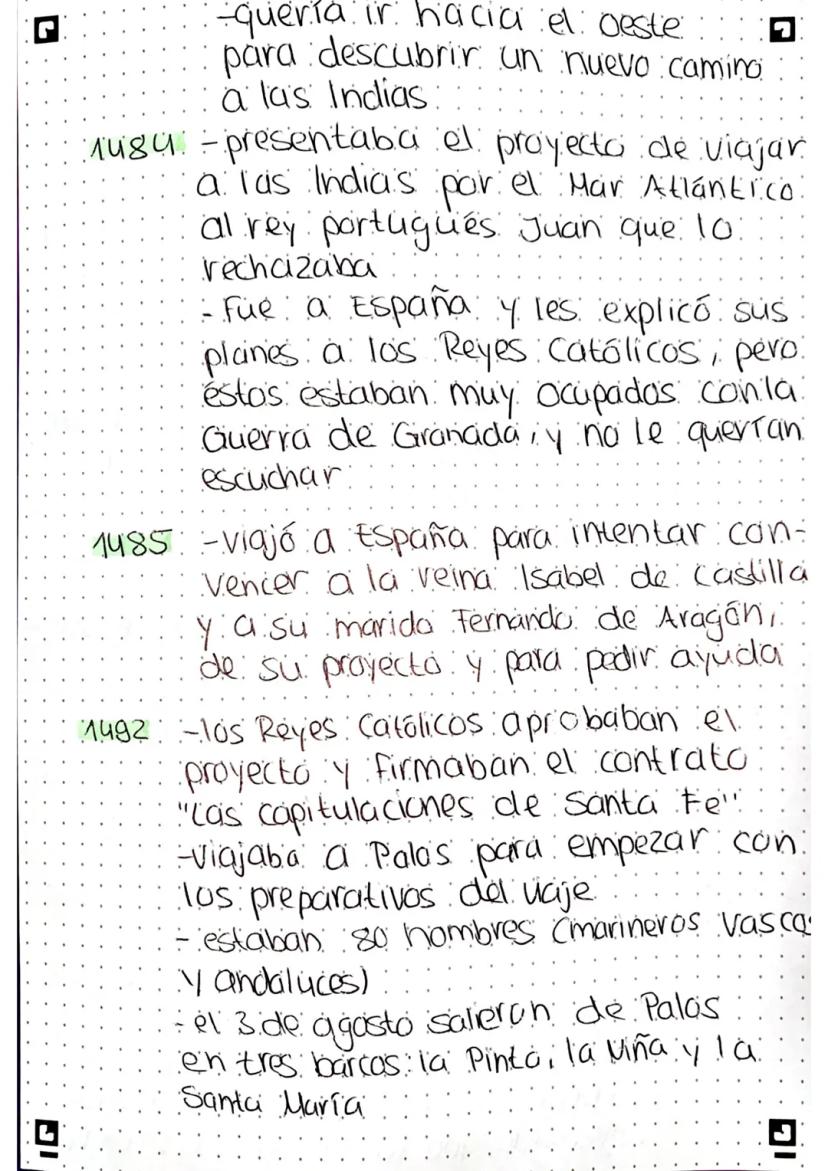 -quería ir hacia el oeste
para descubrir un nuevo camino
a las Indias
1484 -presentaba el proyecto de viajar
a las Indias por el Mar Atlántico
al rey portugués Juan que lo
rechazaba
- Fue a España y les explicó sus
planes a los Reyes Católicos, pero
éstos estaban muy ocupados con la
Guerra de Granada, y no le querían
escuchar
1485 -viajó a España para intentar con-
vencer a la reina Isabel de Castilla
y a su marido Fernando de Aragón,
de su proyecto y para pedir ayuda
1492 -los Reyes Católicos aprobaban el
proyecto y firmaban el contrato
"Las capitulaciones de Santa Fe"
-Viajaba a Palos para empezar con
los preparativos del viaje
- estaban 80 hombres (marineros vascos
y andaluces)
- el 3 de agosto salieron de Palos
en tres barcos: la Pinta, la Niña y la
Santa María